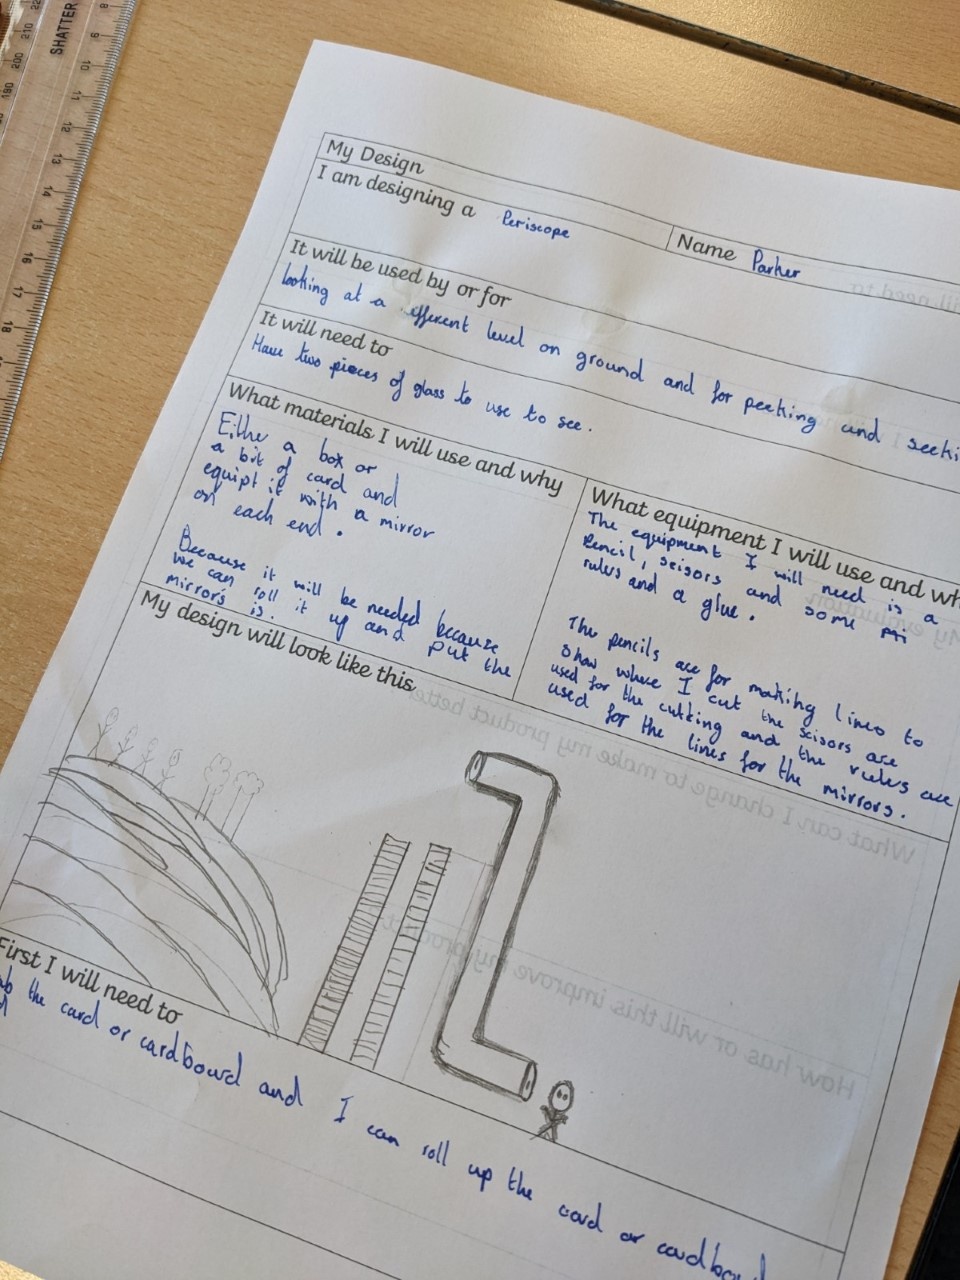 SHATTER
My Design
I am designing a Periscope
Name Parker
It will be used by or for
looking at a efferent level on ground and for peeking and seeki
It will need to
Have two pieces of glass to use to see.
What materials I will use and why
Either a box or
a bit of card and
equipt it with a mirror
on each end.
Because it will be needed because
we can roll it up and put the
mirrors is.
What equipment I will use and wh
The equipment I will need is a
Pencil, scisors and some mi
rulers and a glue.
The pencils are for making lines to
show where I cut the scisors are
used for the cutting and the rulers are
used for the lines for the mirrors.
My design will look like this
First I will need to
the card or cardboard and I can roll up the card or cardboa